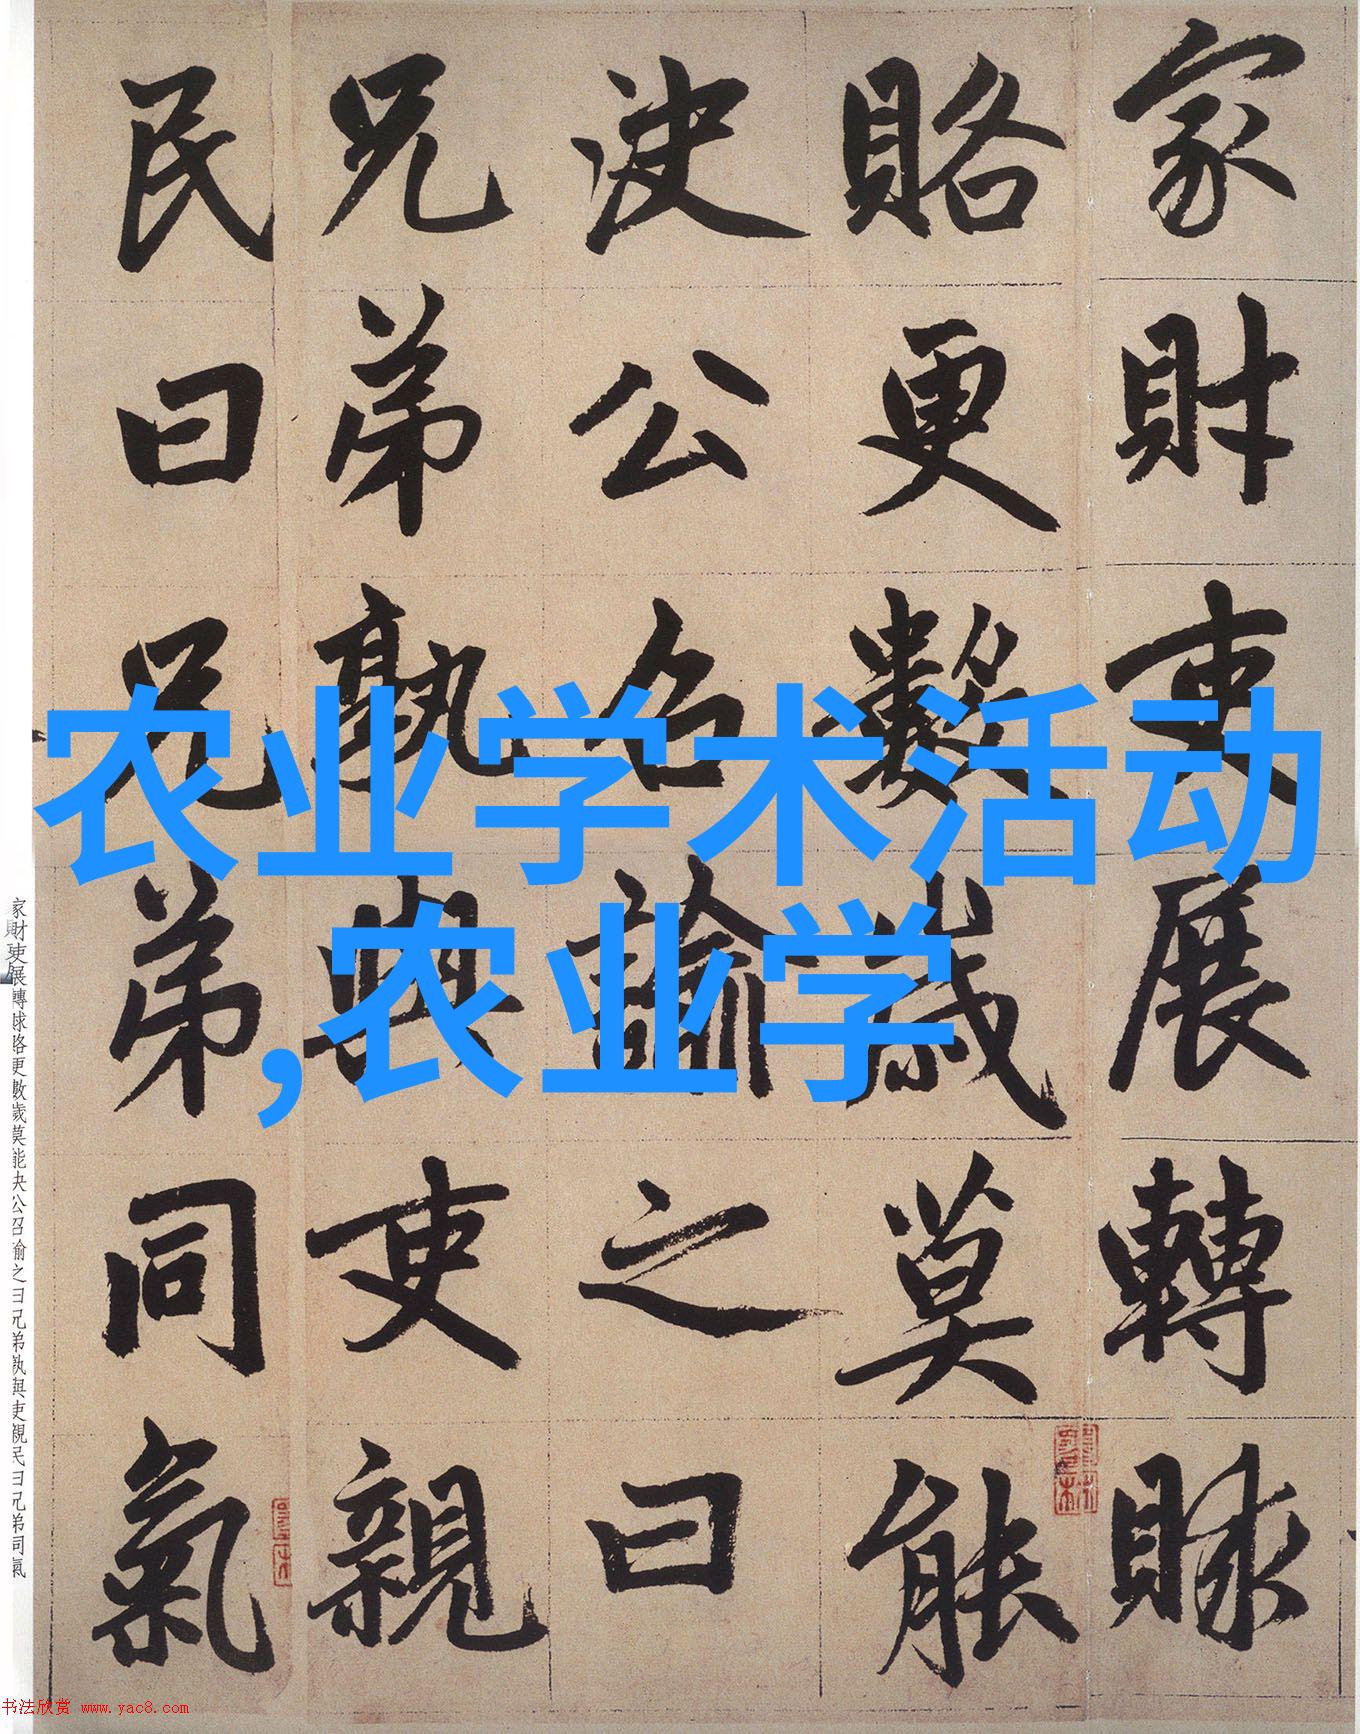 家財吏展轉賕
賂更數歲莫能
決公召諭之曰
兄弟孰與吏親
民曰兄弟同氣
农业学术活动
,农业学
家財吏展轉賕賂更數歲莫能決公召諭之曰兄弟孰與吏親民曰兄弟同氣
书法欣赏 www.yac8.com